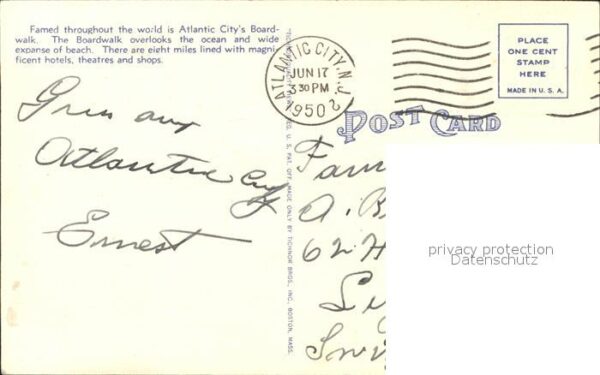 Famed throughout the world is Atlantic City's Board-
walk. The Boardwalk overlooks the ocean and wide
expanse of beach. There are eight miles lined with magni-
ficent hotels, theatres and shops.
ATLANTIC CITY, N.J.
JUN 17
3 30 PM
1950
2
PLACE
ONE CENT
STAMP
HERE
MADE IN U.S.A.
POST CARD
Gruss aus
Atlantic City
Ernest
REG. U.S. PAT. OFF. MADE ONLY BY TICHNOR BROS., INC., BOSTON, MASS.
Fam
A. B
62 H
privacy protection
Datenschutz